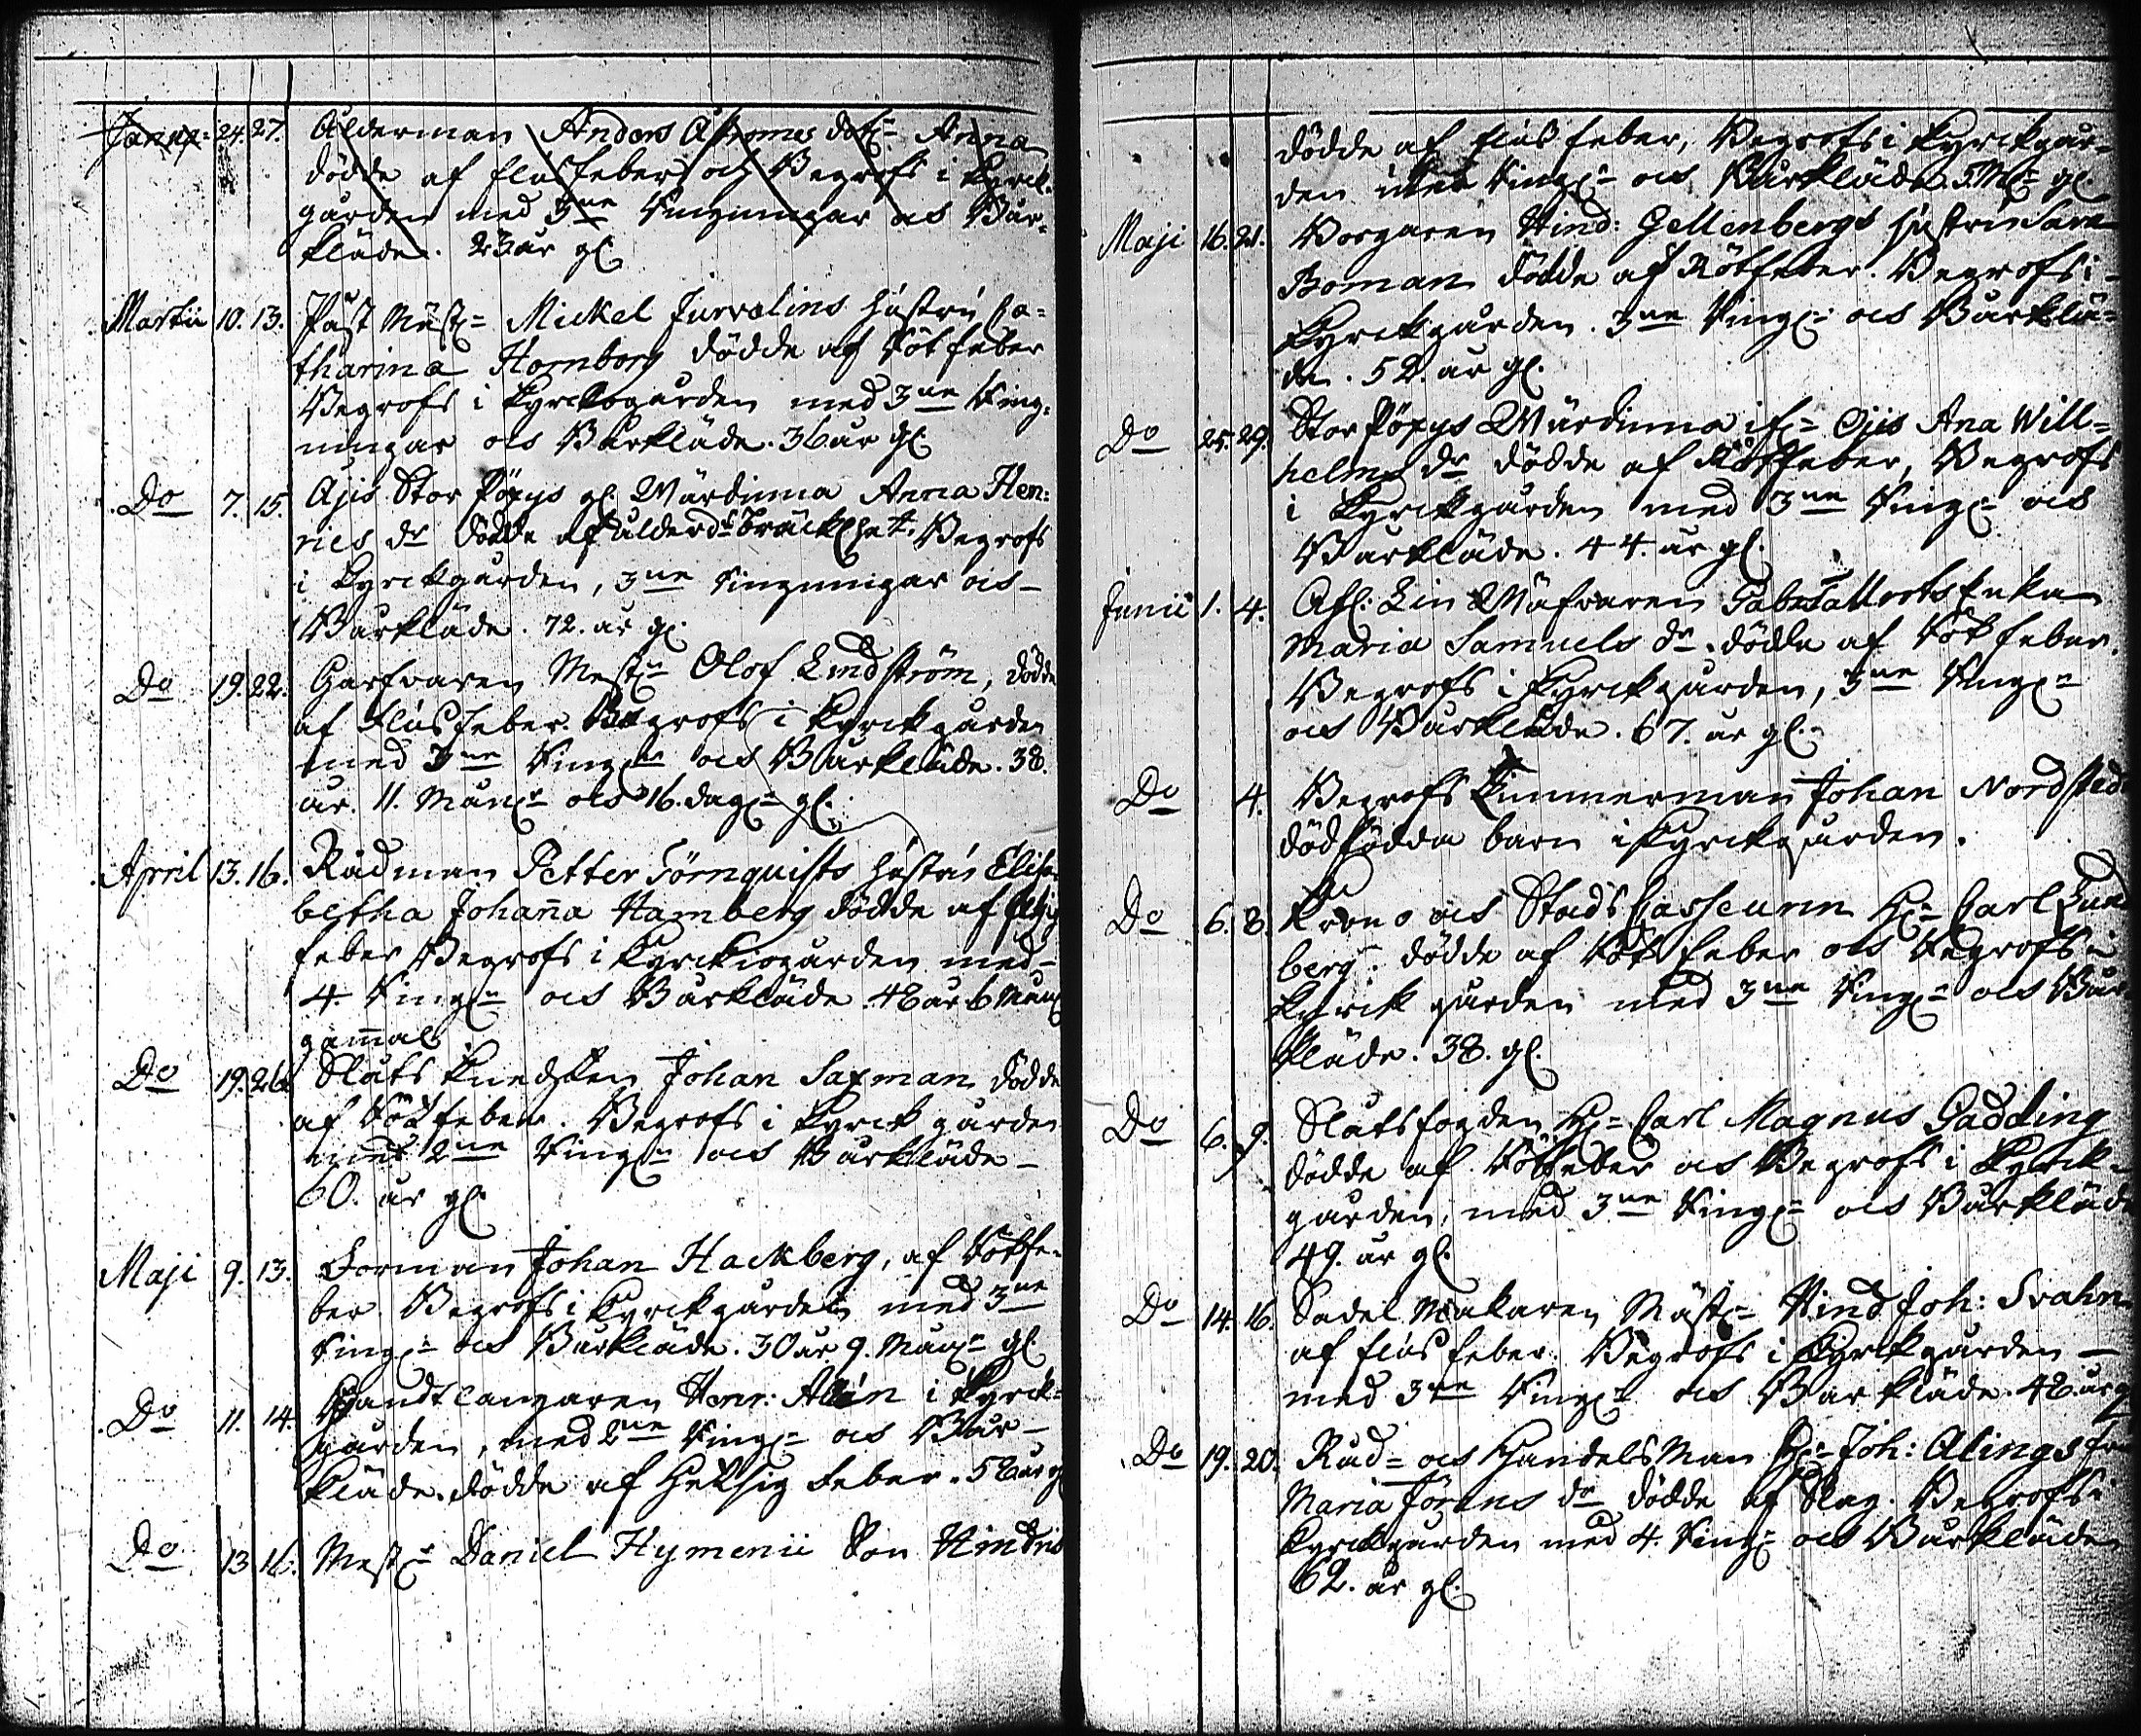 Janua: 24. 27. Ålderman Anders Åstromes dotter Anna
dödde af flusfeber och Begrofs i kyrck-
gården med 3ne Ringningar och Bår-
kläde. 23 år gl.
Martii 10. 13. Mäst: Mickel Jurvelins hustru Ca=
tharina Hornborg dödde af Rötfeber
Begrofs i kyrckogården med 3ne Ring-
ningar och Bårkläde. 36 år gl.
Do 7. 15. Ajis Stor Pöxys gl. Wärdinna Anna Hen:
rics dr dödde af ålderds bräcklhet. Begrofs
i kyrckgården, 3ne ringningar och
Bårkläde. 72. år gl.
Do 19. 22. Garfvaren Mest: Olof Lindström, dödde
af Flusfeber. Begrofs i kyrckgården
med 3ne Ring: och Bårkläde. 38.
år. 11. Mån: och 16. dag: gl.
April 13. 16. Rådman Petter Törnquists hustru Elisa
betha Johanna Hamberg dödde af
feber Begrofs i kyrckiogården med
4. Ring: och Bårkläde. 48 år 6 Mån:
gammal
Do 19. 26. Slåts kneckten Johan Saxman dödde
af Rötfeber. Begrofs i kyrck gården
med 2ne Ring: och Bårkläde
60. år gl.
Maji 9. 13. Forman Johan Hackberg, af Rötfe-
ber. Begrofs i kyrckgården med 3ne
Ring: och Bårkläde. 30 år 9. Mån: gl.
Do 11. 14. Handtlangaren Henr: Alin i kyrck-
gården, med 2ne Ring: och Bår-
kläde. dödde af Hetsig feber. 58 år gl
Do 13 16. Mest: Daniel Hymenii Son Hindric
dödde af flus feber, Begrofs i kyrckgår-
den Ring: och Bårkläde. 5 M: gl.
Maji 16. 21. Borgaren Hind: Gellenbergs hustru Sara
Boman dödde af Rötfeber. Begrofs i
kyrckgården. 3ne Ring: och Bårklä-
de. 52. år gl.
Do 25. 29. Stor Pöxys Wärdinna Ajis Ana Will=
helms dr dödde af Rötfeber, Begrofs
i kyrckgården med 3ne Ring: och
Bårkläde. 44. år gl.
Junii 1. 4. Afl: Lin Wäfvaren Enka
Maria Samuels dr. dödde af Rötfeber.
Begrofs i kyrckgården, 3ne Ring:
och Bårkläde. 67. år gl.
Do 4. Begrofs Timmerman Johan Nordsted
dödfödda barn i kyrckgården.
Do 6. 8. Krono och Stads Casseuren H: Carl Lund
berg. dödde af Rötfeber och Begrofs i
kyrck gården med 3ne Ring: och Bår-
kläde. 38. gl.
Do 6. 9. Slåtsfogden H: Carl Magnus Gadding
dödde af Rötfeber och Begrofs i kyrck-
gården, med 3ne Ring: och Bårkläde
49. år gl.
Do 14. 16. Sadel Makaren Mäst: Hind Joh: Svahn
af flus feber. Begrofs i kyrckgården
med 3ne Ring: och Bårkläde. 48. år gl
Do 19. 20. Råd= och HandelsMan H: Joh: Alings fru
Maria Jörans dr dödde af Slag. Begrofs i
kyrckgården med 4. Ring: och Bårkläde
62. år gl.